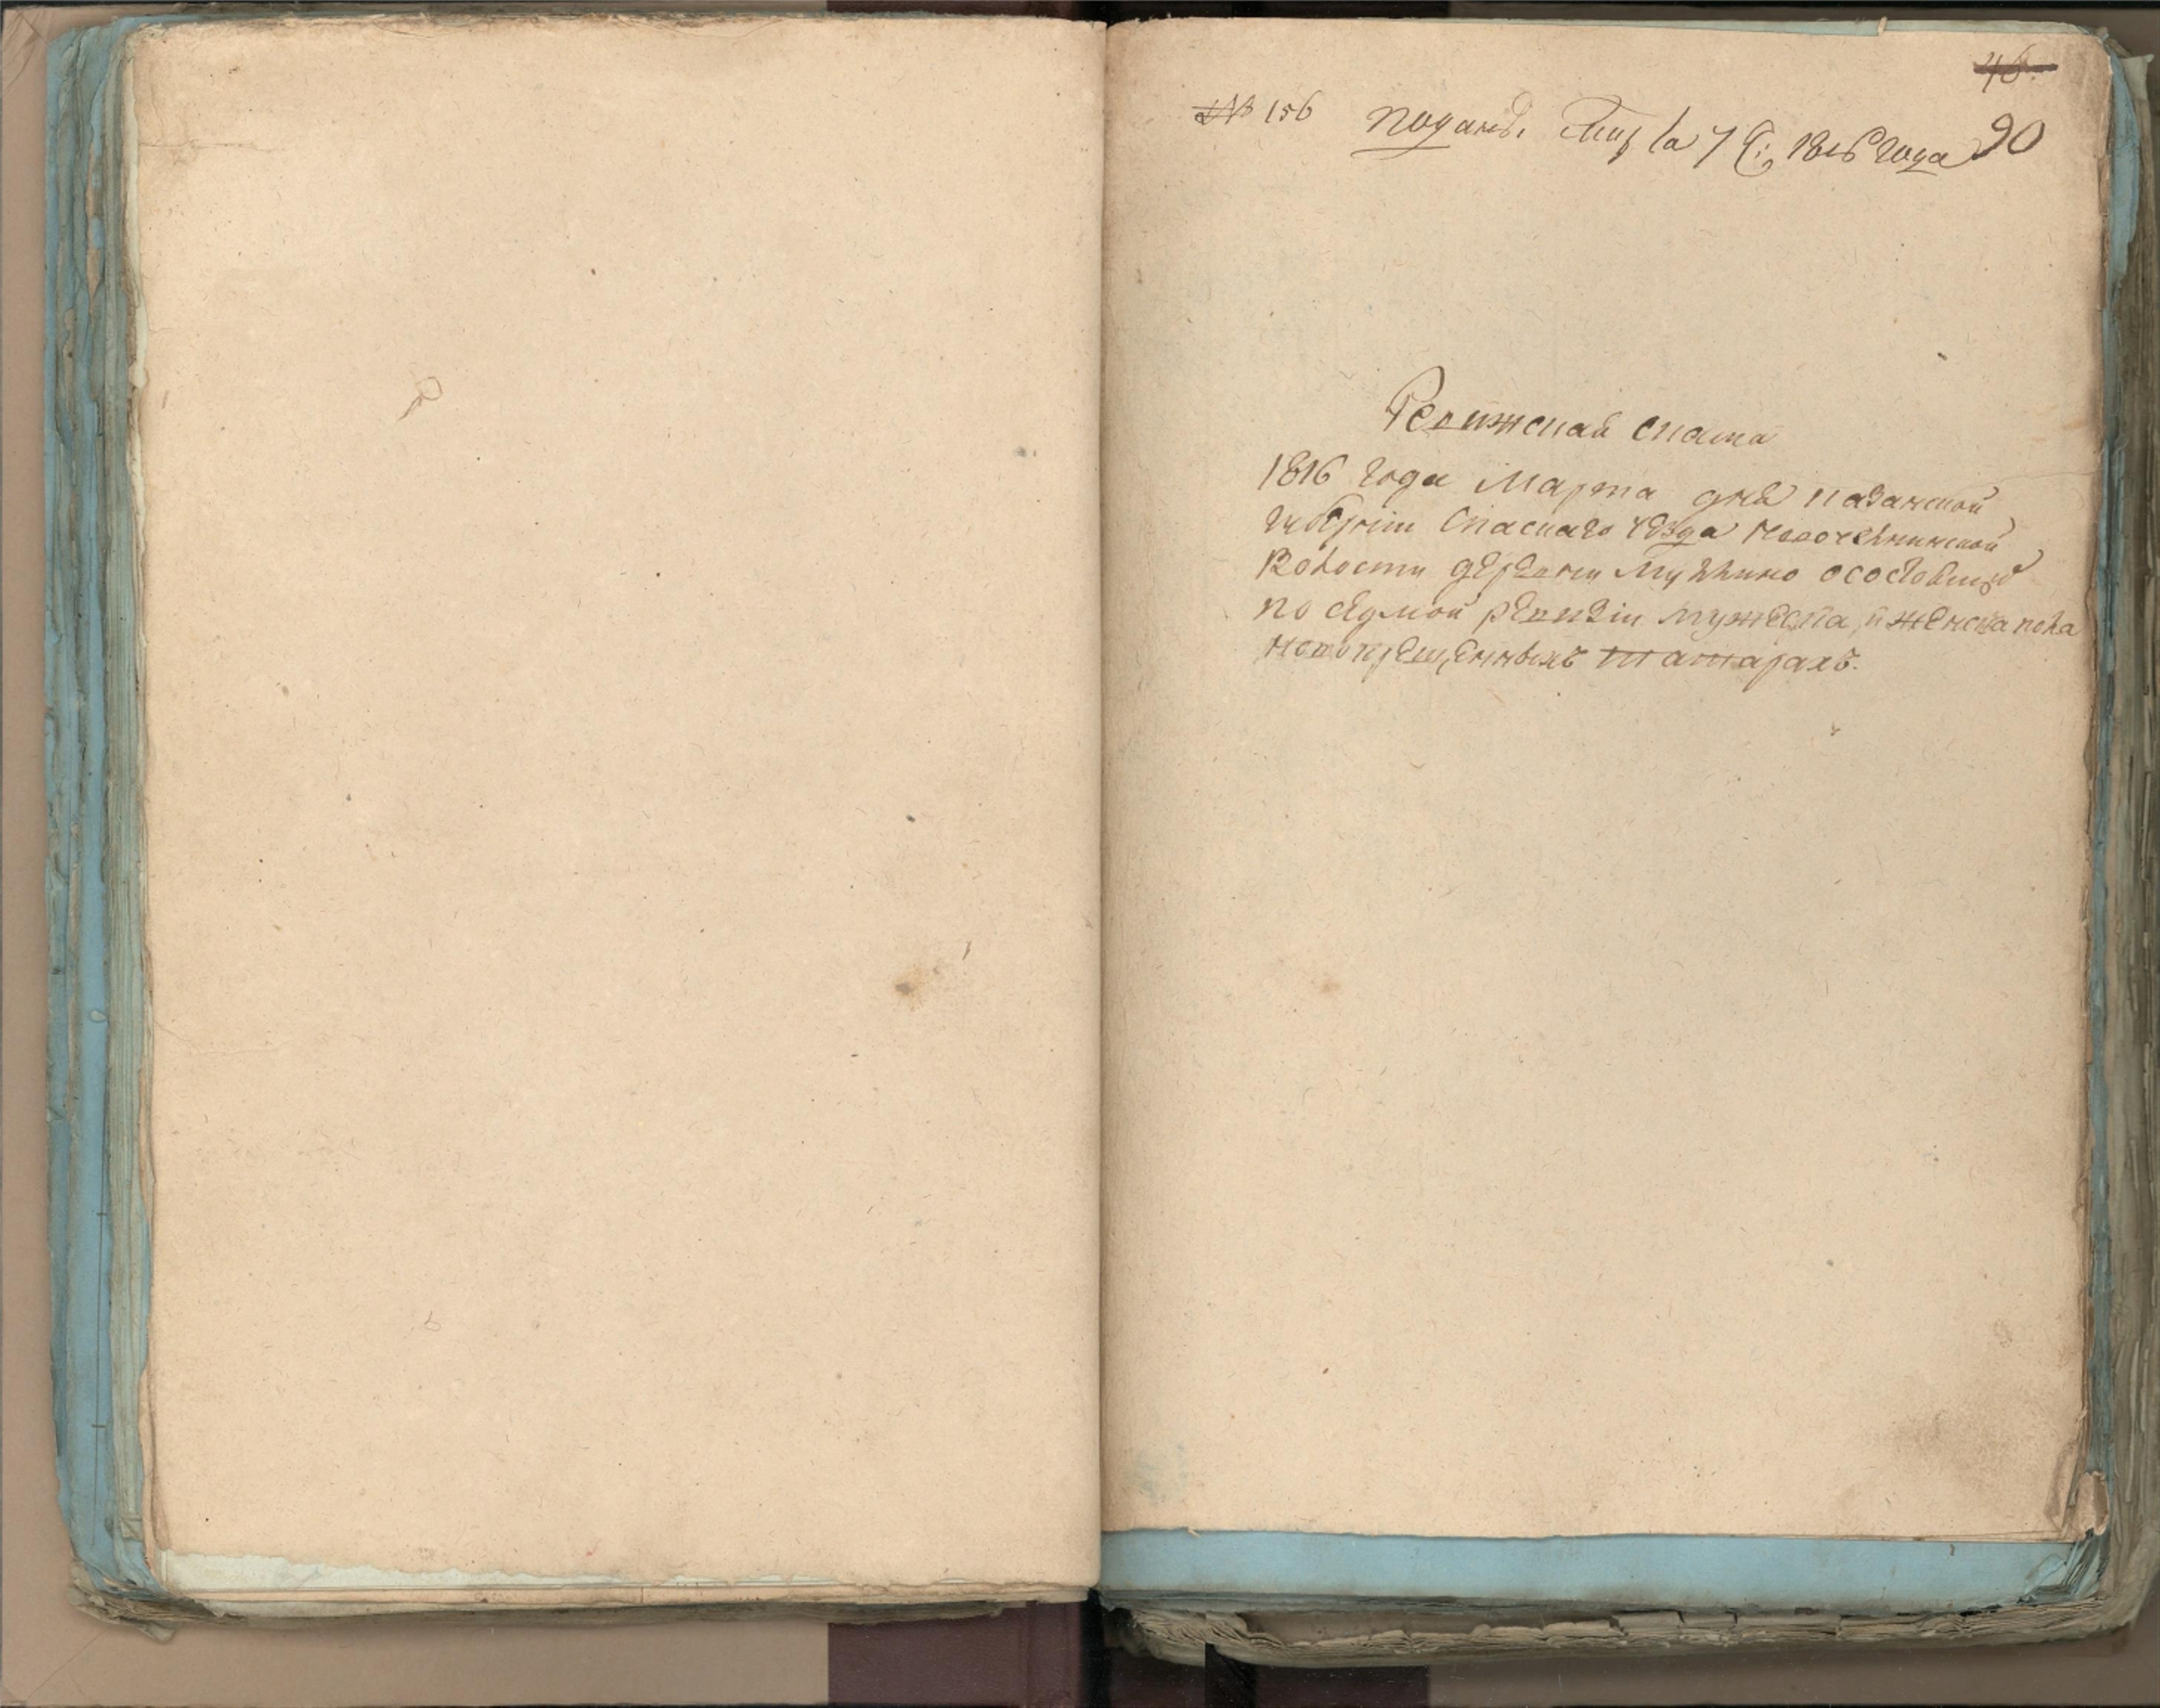 46.
№ 156 подана 7 1816 года 90
Ревижская скаска
1816 года Марта дня казанской
губернiи Спаскаго уезда
Волости деревни осостоящихъ
по седмой ревизiи мужеска и женска пола
новокрещенныхъ татарахъ.